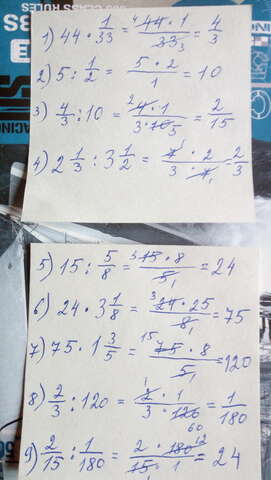 1) 44 · 1/33 = 44 · 1 / 33 3 = 4/3
2) 5 : 1/2 = 5 · 2 / 1 = 10
3) 4/3 : 10 = 2 4 · 1 / 3 · 10 5 = 2/15
4) 2 1/3 : 3 1/2 = 7 1 · 2 / 3 · 7 1 = 2/3
5) 15 : 5/8 = 3 15 · 8 / 5 1 = 24
6) 24 · 3 1/8 = 3 24 · 25 / 8 1 = 75
7) 75 · 1 3/5 = 15 75 · 8 / 5 1 = 120
8) 2/3 : 120 = 1 2 · 1 / 3 · 120 60 = 1/180
9) 2/15 : 1/180 = 2 · 180 12 / 15 1 · 1 = 24